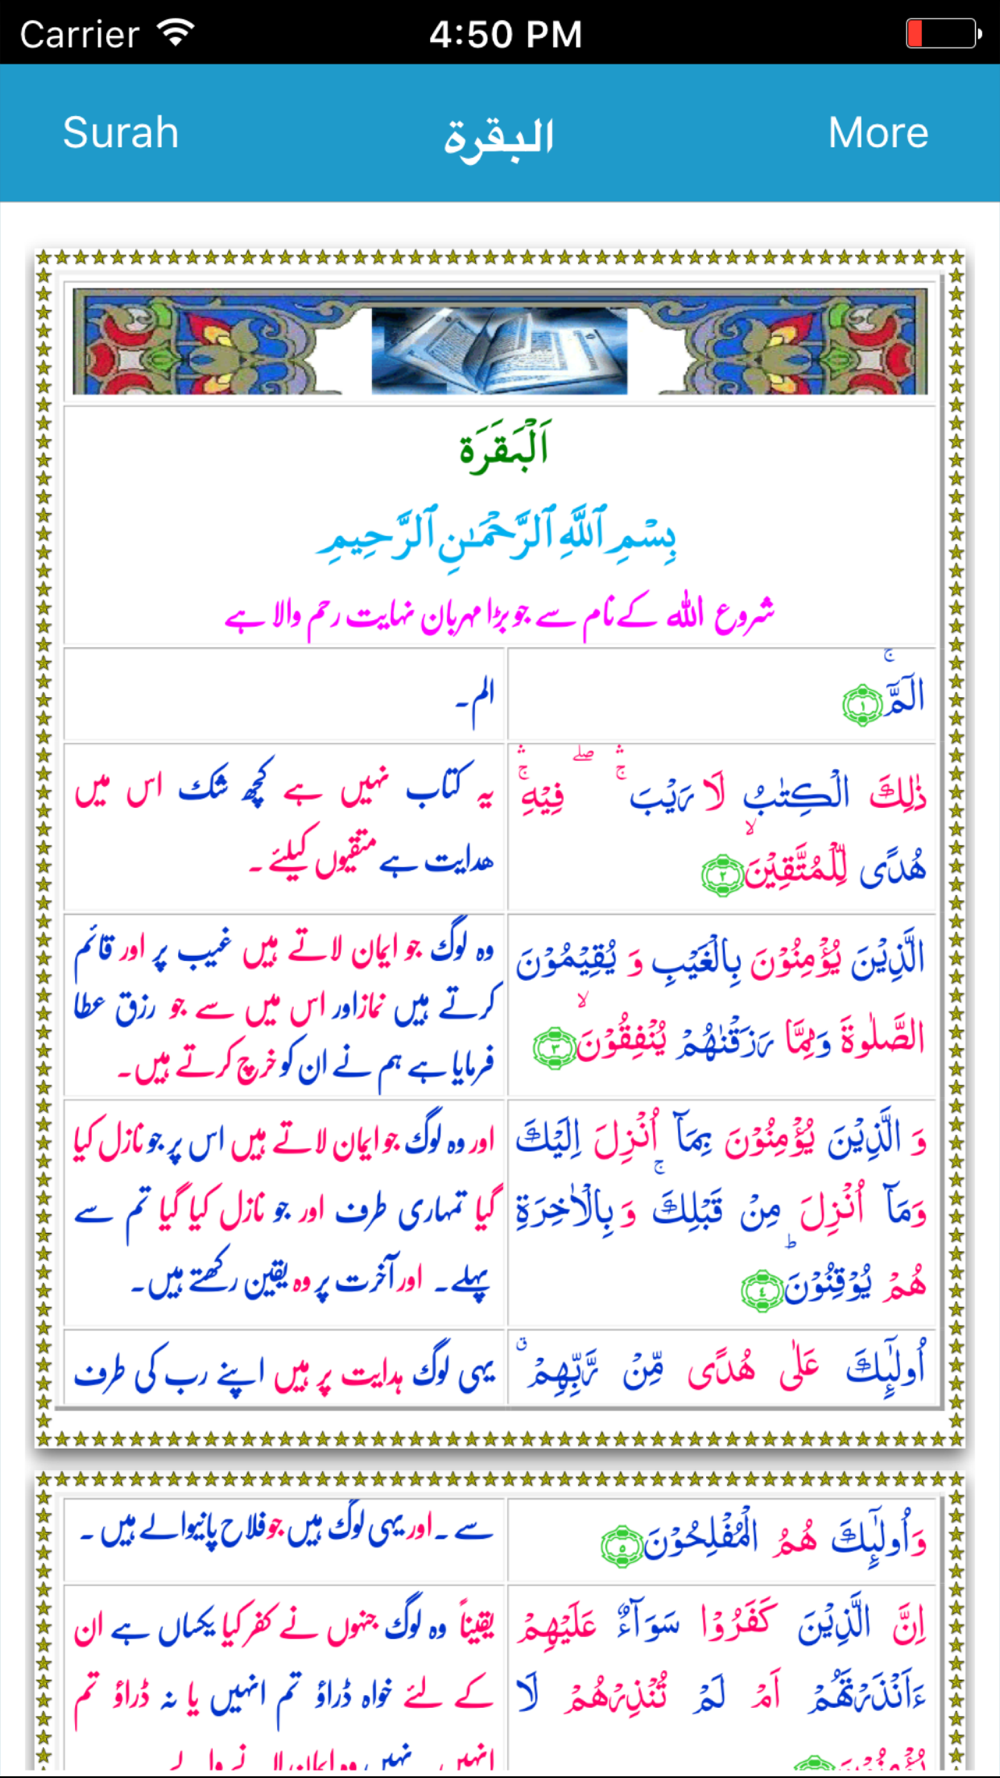 Carrier 4:50 PM
Surah البقرة More
اَلْبَقَرَة
بِسْمِ ٱللَّهِ ٱلرَّحْمَـٰنِ ٱلرَّحِيمِ
شروع اللہ کے نام سے جو بڑا مہربان نہایت رحم والا ہے
الٓمّٓ ۚ ۝١
الم۔
ذٰلِكَ الْكِتٰبُ لَا رَيْبَ ۛۚ ۖ فِيْهِ ۛۚ
هُدًى لِّلْمُتَّقِيْنَ ۙ ۝٢
یہ کتاب نہیں ہے کچھ شک اس میں
ھدایت ہے متقیوں کیلئے ۔
الَّذِيْنَ يُؤْمِنُوْنَ بِالْغَيْبِ وَ يُقِيْمُوْنَ
الصَّلٰوةَ وَمِمَّا رَزَقْنٰهُمْ يُنْفِقُوْنَ ۙ ۝٣
وہ لوگ جو ایمان لاتے ہیں غیب پر اور قائم
کرتے ہیں نماز اور اس میں سے جو رزق عطا
فرمایا ہے ہم نے ان کو خرچ کرتے ہیں۔
وَ الَّذِيْنَ يُؤْمِنُوْنَ بِمَآ اُنْزِلَ اِلَيْكَ
وَمَآ اُنْزِلَ مِنْ قَبْلِكَ ۚ وَ بِالْاٰخِرَةِ
هُمْ يُوْقِنُوْنَ ؕ ۝٤
اور وہ لوگ جو ایمان لاتے ہیں اس پر جو نازل کیا
گیا تمہاری طرف اور جو نازل کیا گیا تم سے
پہلے۔ اور آخرت پر وہ یقین رکھتے ہیں۔
اُولٰٓئِكَ عَلٰى هُدًى مِّنْ رَّبِّهِمْ ۗ
یہی لوگ ہدایت پر ہیں اپنے رب کی طرف
وَاُولٰٓئِكَ هُمُ الْمُفْلِحُوْنَ ۝٥
سے ۔ اور یہی لوگ ہیں جو فلاح پانیوالے ہیں ۔
اِنَّ الَّذِيْنَ كَفَرُوْا سَوَآءٌ عَلَيْهِمْ
ءَاَنْذَرْتَهُمْ اَمْ لَمْ تُنْذِرْهُمْ لَا
یقیناً وہ لوگ جنہوں نے کفر کیا یکساں ہے ان
کے لئے خواہ ڈراؤ تم انہیں یا نہ ڈراؤ تم